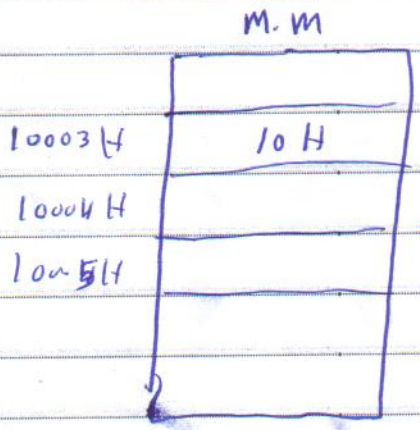 M.M
10003H 10 H
10004 H
10005H